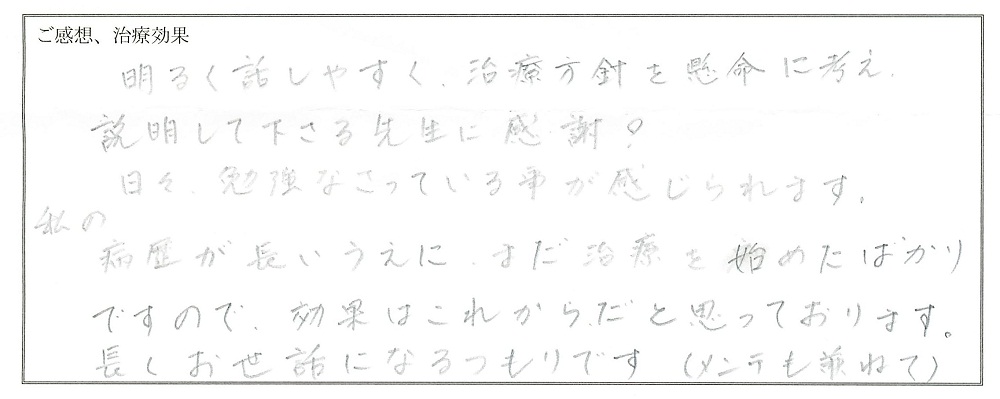 ご感想、治療効果
明るく話しやすく、治療方針を懸命に考え、
説明して下さる先生に感謝♀
日々、勉強なさっている事が感じられます。
私の
病歴が長いうえに、まだ治療を始めたばかり
ですので、効果はこれからだと思っております。
長くお世話になるつもりです(メンテも兼ねて)